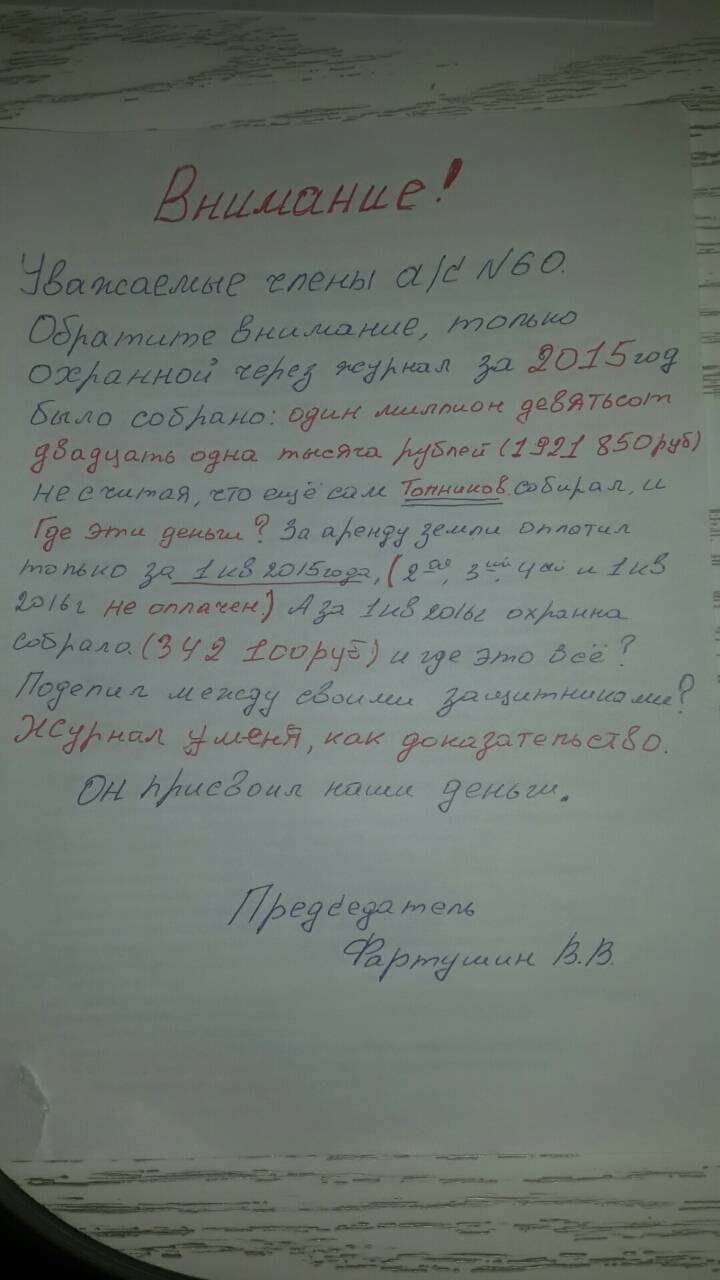 Внимание!
Уважаемые члены а/с №60.
Обратите внимание, только
охранной через журнал за 2015 год
было собрано: один миллион девятьсот
двадцать одна тысяча рублей (1921 850руб)
не считая, что ещё сам Топников собирал, и
Где эти деньги? За аренду земли оплатил
только за 1кв 2015года, (2ой, 3ий, 4ый и 1кв
2016г не оплачен.) А за 1кв 2016г охранна
собрала (342 100руб) и где это всё?
Поделил между своими защитниками?
Журнал у меня, как доказательство.
Он присвоил наши деньги.
Председатель
Фартушин В.В.